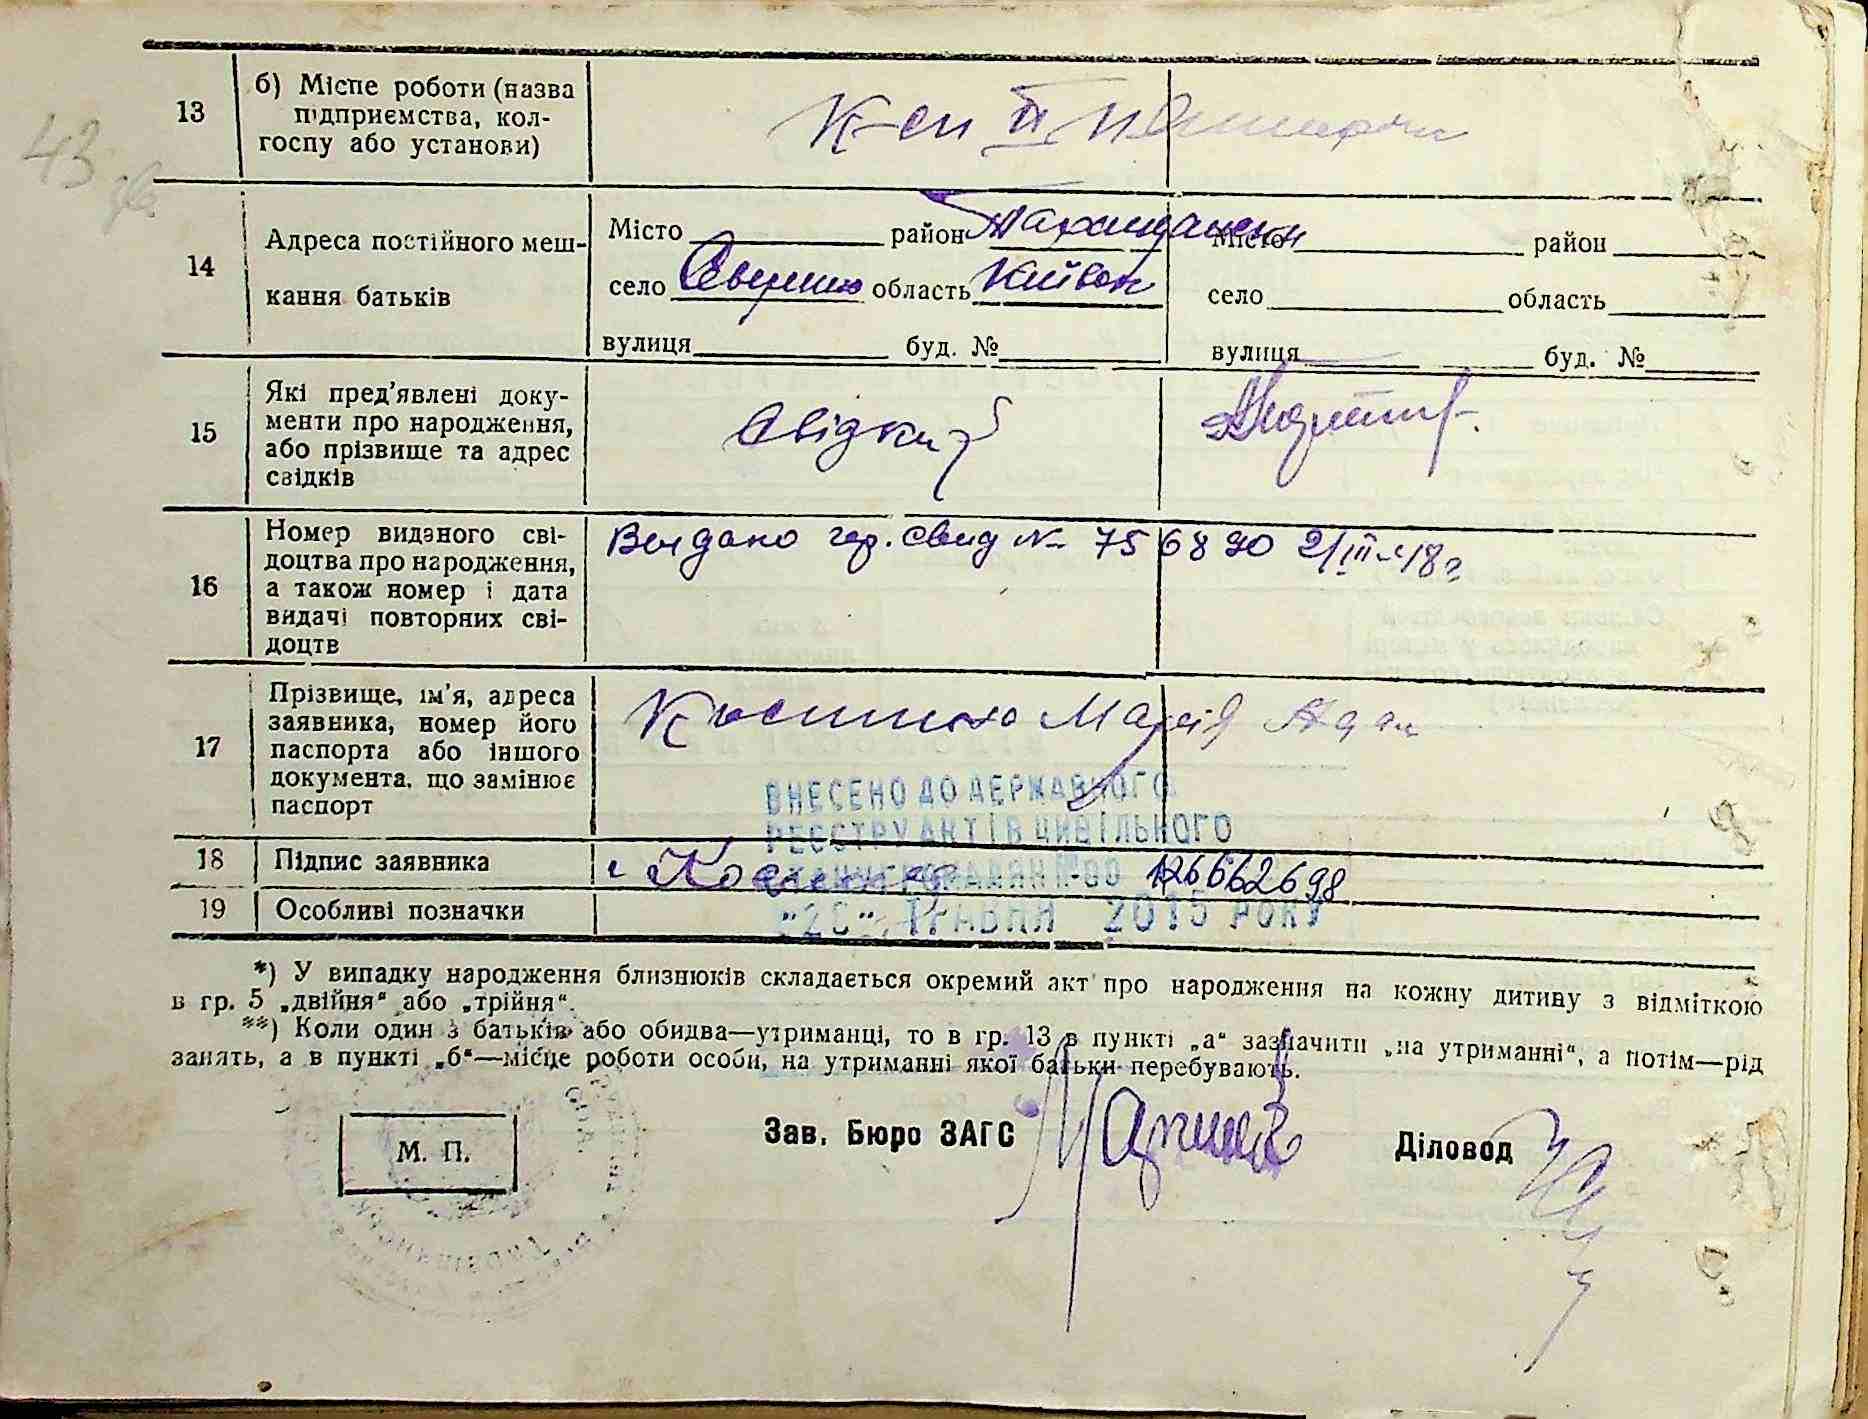 43 зв.
13
б) Місце роботи (назва
підприємства, кол-
госпу або установи)
К-сп ІІ
14
Адреса постійного меш-
кання батьків
Місто район
село область Київськ
вулиця буд. №
Місто район
село область
вулиця буд. №
15
Які пред’явлені доку-
менти про народження,
або прізвище та адрес
свідків
Свідки
16
Номер виданого сві-
доцтва про народження,
а також номер і дата
видачі повторних сві-
доцтв
Выдано гер. свид № 756890 2/III-48г
17
Прізвище, ім’я, адреса
заявника, номер його
паспорта або іншого
документа, що замінює
паспорт
Марія Адам
ВНЕСЕНО ДО ДЕРЖАВНОГО
РЕЄСТРУ АКТІВ ЦИВІЛЬНОГО
СТАНУ ГРОМАДЯН №00 126662698
ТРАВНЯ 2015 РОКУ
18
Підпис заявника
19
Особливі позначки
*) У випадку народження близнюків складається окремий акт про народження на кожну дитину з відміткою
в гр. 5 „двійня“ або „трійня“.
**) Коли один з батьків або обидва—утриманці, то в гр. 13 в пункті „а“ зазначити „на утриманні“, а потім—рід
занять, а в пункті „б“—місце роботи особи, на утриманні якої батьки перебувають.
М. П.
Зав. Бюро ЗАГС
Діловод